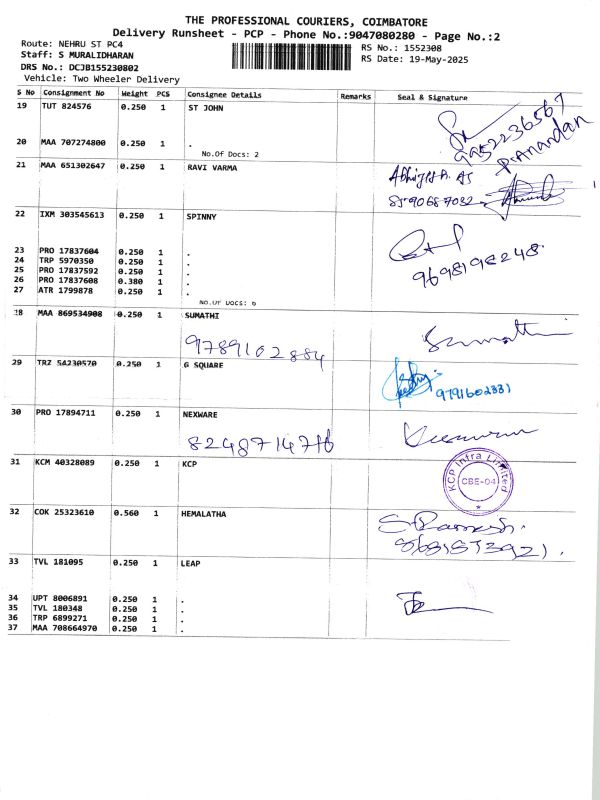 THE PROFESSIONAL COURIERS, COIMBATORE
Delivery Runsheet - PCP - Phone No.:9047080280 - Page No.:2
Route: NEHRU ST PC4
Staff: S MURALIDHARAN
RS No.: 1552308
DRS No.: DCJB155230802
RS Date: 19-May-2025
Vehicle: Two Wheeler Delivery
S No Consignment No Weight PCS Consignee Details Remarks Seal & Signature
19 TUT 824576 0.250 1 ST JOHN
9952236567
P. Anandan
20 MAA 707274800 0.250 1 .
No.Of Docs: 2
21 MAA 651302647 0.250 1 RAVI VARMA
22 IXM 303545613 0.250 1 SPINNY
23 PRO 17837604 0.250 1 .
24 TRP 5970350 0.250 1 .
25 PRO 17837592 0.250 1 .
26 PRO 17837608 0.380 1 .
27 ATR 1799878 0.250 1 .
9698198248
No.Of Docs: 6
28 MAA 869534908 0.250 1 SUMATHI
9789102884
Sumathi
29 TRZ 5A230570 0.250 1 G SQUARE
9791602331
30 PRO 17894711 0.250 1 NEXWARE
8248714716
31 KCM 40328089 0.250 1 KCP
KCP Infra Limited
CBE-04
32 COK 25323610 0.560 1 HEMALATHA
S. Ramesh.
33 TVL 181095 0.250 1 LEAP
34 UPT 8006891 0.250 1 .
35 TVL 180348 0.250 1 .
36 TRP 6899271 0.250 1 .
37 MAA 708664970 0.250 1 .